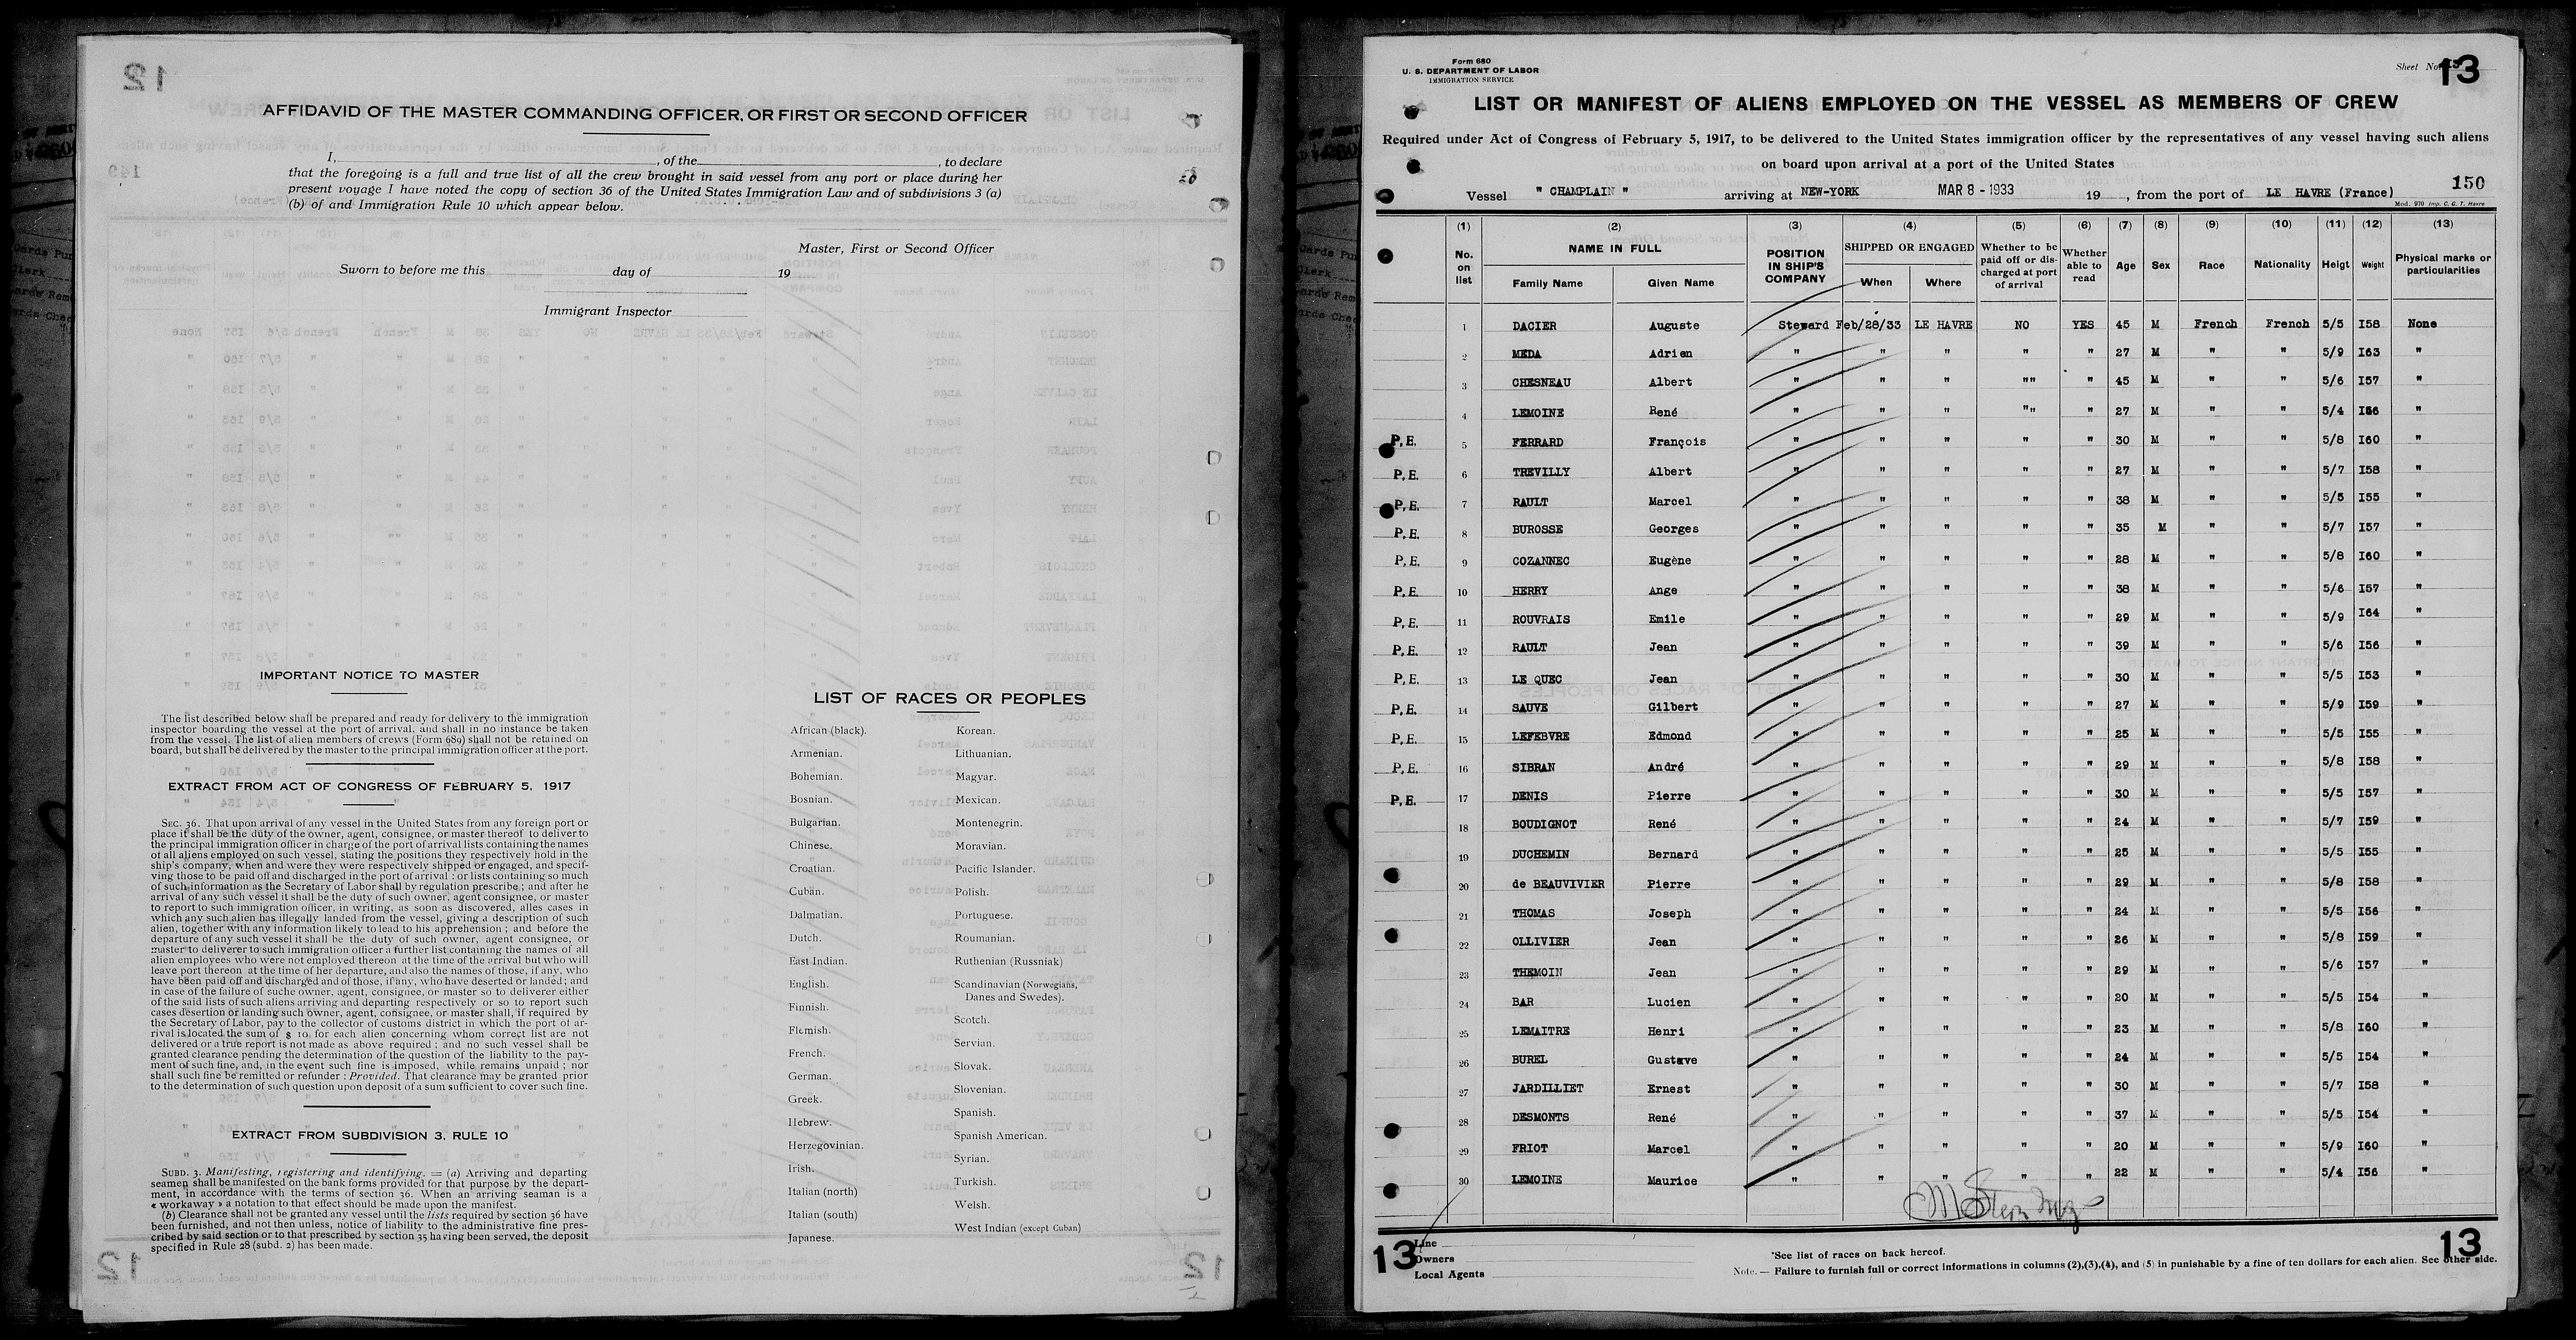 AFFIDAVID OF THE MASTER COMMANDING OFFICER, OR FIRST OR SECOND OFFICER
I, , of the , to declare
that the foregoing is a full and true list of all the crew brought in said vessel from any port or place during her
present voyage I have noted the copy of section 36 of the United States Immigration Law and of subdivisions 3 (a)
(b) of and Immigration Rule 10 which appear below.
Master, First or Second Officer
Sworn to before me this day of 19
Immigrant Inspector
IMPORTANT NOTICE TO MASTER
The list described below shall be prepared and ready for delivery to the immigration
inspector boarding the vessel at the port of arrival. and shall in no instance be taken
from the vessel. The list of alien members of crews (Form 689) shall not be retained on
board, but shall be delivered by the master to the principal immigration officer at the port.
EXTRACT FROM ACT OF CONGRESS OF FEBRUARY 5, 1917
SEC. 36. That upon arrival of any vessel in the United States from any foreign port or
place it shall be the duty of the owner, agent, consignee, or master thereof to deliver to
the principal immigration officer in charge of the port of arrival lists containing the names
of all aliens employed on such vessel, stating the positions they respectively hold in the
ship's company. when and were they were respectively shipped or engaged, and specif-
ving those to be paid off and discharged in the port of arrival : or lists containing so much
of such information as the Secretary of Labor shall by regulation prescribe ; and after he
arrival of any such vessel it shall be the duty of such owner, agent consignee, or master
to report to such immigration officer, in writing, as soon as discovered, alles cases in
which any such alien has illegally landed from the vessel, giving a description of such
alien, together with any information likely to lead to his apprehension ; and before the
departure of any such vessel it shall be the duty of such owner, agent consignee, or
master to deliverer to such immigration officer a further list containing the names of all
alien employees who were not employed thereon at the time of the arrival but who will
leave port thereon at the time of her departure, and also the names of those, if any, who
have been paid off and discharged and of those, if any, who have deserted or landed ; and
in case of the failure of suche owner, agent, consignee, or master so to deliverer either
of the said lists of such aliens arriving and departing respectively or so to report such
cases desertion or landing such owner, agent, consignee, or master shall, if required by
the Secretary of Labor, pay to the collector of customs district in which the port of ar-
rival is located the sum of $ 10. for each alien concerning whom correct list are not
delivered or a true report is not made as above required ; and no such vessel shall be
granted clearance pending the determination of the question of the liability to the pay-
ment of such fine, and, in the event such fine is imposed, while remains unpaid ; nor
shall such fine be remitted or refunder : Provided. That clearance may be granted prior
to the determination of such question upon deposit of a sum sufficient to cover such fine.
EXTRACT FROM SUBDIVISION 3, RULE 10
SUBD. 3. Manifesting, registering and identifying. = (a) Arriving and departing
seamen shall be manifested on the bank forms provided for that purpose by the depart-
ment, in accordance with the terms of section 36. When an arriving seaman is a
« workaway » a notation to that effect should be made upon the manifest.
(b) Clearance shall not be granted any vessel until the lists required by section 36 have
been furnished, and not then unless, notice of liability to the administrative fine pres-
cribed by said section or to that prescribed by section 35 having been served, the deposit
specified in Rule 28 (subd. 2) has been made.
LIST OF RACES OR PEOPLES
African (black).
Armenian.
Bohemian.
Bosnian.
Bulgarian.
Chinese.
Croatian.
Cuban.
Dalmatian.
Dutch.
East Indian.
English.
Finnish.
Flemish.
French.
German.
Greek.
Hebrew.
Herzegovinian.
Irish.
Italian (north)
Italian (south)
Japanese.
Korean.
Lithuanian.
Magyar.
Mexican.
Montenegrin.
Moravian.
Pacific Islander.
Polish.
Portuguese.
Roumanian.
Ruthenian (Russniak)
Scandinavian (Norwegians,
Danes and Swedes).
Scotch.
Servian.
Slovak.
Slovenian.
Spanish.
Spanish American.
Syrian.
Turkish.
Welsh.
West Indian (except Cuban)
Form 680
U. S. DEPARTMENT OF LABOR
IMMIGRATION SERVICE
Sheet No 13
LIST OR MANIFEST OF ALIENS EMPLOYED ON THE VESSEL AS MEMBERS OF CREW
Required under Act of Congress of February 5, 1917, to be delivered to the United States immigration officer by the representatives of any vessel having such aliens
on board upon arrival at a port of the United States
150
Vessel " CHAMPLAIN " arriving at NEW-YORK MAR 8 - 1933 19 , from the port of LE HAVRE (France)
Mod. 970 Imp. C. G. T. Havre
(1) (2) (3) (4) (5) (6) (7) (8) (9) (10) (11) (12) (13)
No. on list NAME IN FULL Family Name Given Name POSITION IN SHIP'S COMPANY SHIPPED OR ENGAGED When Where Whether to be paid off or discharged at port of arrival Whether able to read Age Sex Race Nationality Helgt Weight Physical marks or particularities
1 DACIER Auguste Steward Feb/28/33 LE HAVRE NO YES 45 M French French 5/5 I58 None
2 MEDA Adrien " " " " " 27 M " " 5/9 I63 "
3 CHESNEAU Albert " " " "" " 45 M " " 5/6 I57 "
4 LEMOINE René " " " "" " 27 M " " 5/4 I56 "
P.E. 5 FERRARD François " " " " " 30 M " " 5/8 I60 "
P.E. 6 TREVILLY Albert " " " " " 27 M " " 5/7 I58 "
P.E. 7 RAULT Marcel " " " " " 38 M " " 5/5 I55 "
P.E. 8 BUROSSE Georges " " " " " 35 M " " 5/7 I57 "
P.E. 9 COZANNEC Eugène " " " " " 28 M " " 5/8 I60 "
P.E. 10 HERRY Ange " " " " " 38 M " " 5/6 I57 "
P.E. 11 ROUVRAIS Emile " " " " " 29 M " " 5/9 I64 "
P.E. 12 RAULT Jean " " " " " 39 M " " 5/6 I56 "
P.E. 13 LE QUEC Jean " " " " " 30 M " " 5/5 I53 "
P.E. 14 SAUVE Gilbert " " " " " 27 M " " 5/9 I59 "
P.E. 15 LEFEBVRE Edmond " " " " " 25 M " " 5/5 I55 "
P.E. 16 SIBRAN André " " " " " 29 M " " 5/8 I58 "
P.E. 17 DENIS Pierre " " " " " 30 M " " 5/5 I57 "
18 BOUDIGNOT René " " " " " 24 M " " 5/7 I59 "
19 DUCHEMIN Bernard " " " " " 25 M " " 5/5 I55 "
20 de BEAUVIVIER Pierre " " " " " 29 M " " 5/8 I58 "
21 THOMAS Joseph " " " " " 24 M " " 5/5 I56 "
22 OLLIVIER Jean " " " " " 26 M " " 5/8 I59 "
23 THEMOIN Jean " " " " " 29 M " " 5/6 I57 "
24 BAR Lucien " " " " " 20 M " " 5/5 I54 "
25 LEMAITRE Henri " " " " " 23 M " " 5/8 I60 "
26 BUREL Gustave " " " " " 24 M " " 5/5 I54 "
27 JARDILLIET Ernest " " " " " 30 M " " 5/7 I58 "
28 DESMONTS René " " " " " 37 M " " 5/5 I54 "
29 FRIOT Marcel " " " " " 20 M " " 5/9 I60 "
30 LEMOINE Maurice " " " " " 22 M " " 5/4 I56 "
13 Line
Owners
Local Agents
*See list of races on back hereof.
13
Note. — Failure to furnish full or correct informations in columns (2),(3),(4), and (5) in punishable by a fine of ten dollars for each alien. See other side.